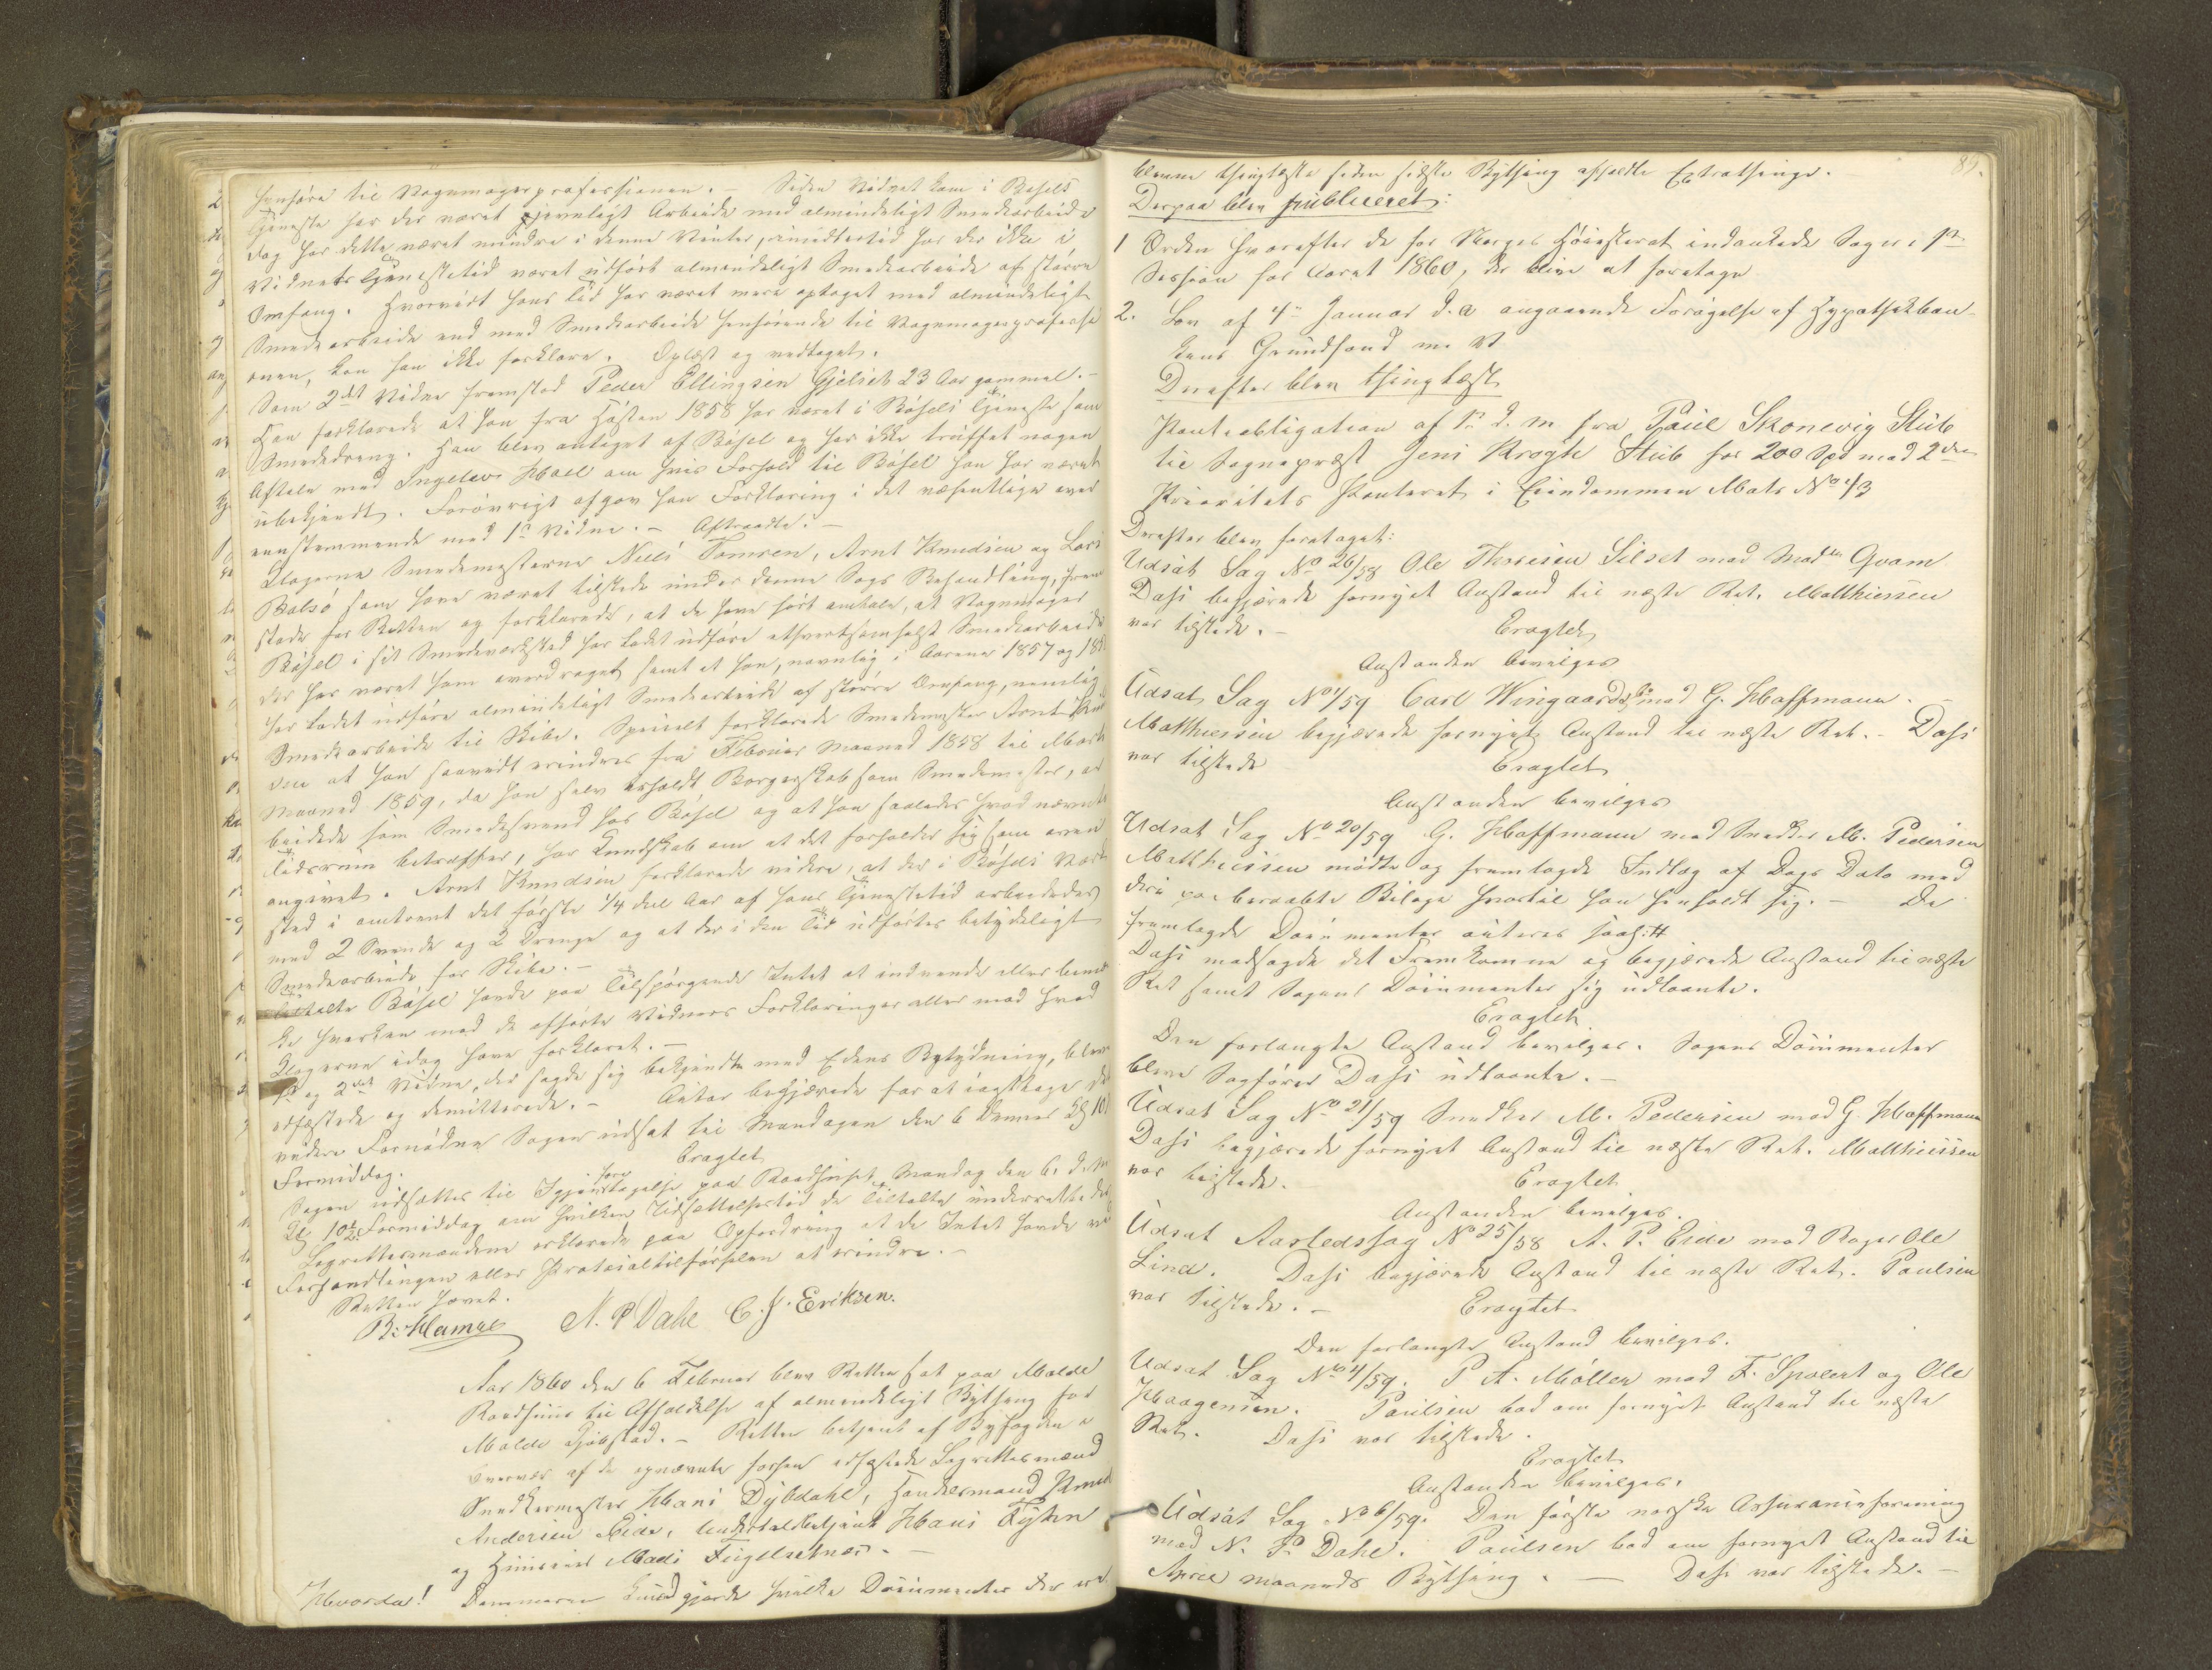 henføre til Vognmagerprofessionen. – Siden Vidnet kom i Bøsels
Tjeneste har der været jevnligt Arbeide med almindeligt Smedearbeide
dog har dette været mindre i denne Vinter, imidlertid har der ikke i
Vidnets Tjenestetid været udført almindeligt Smedearbeide af større
Omfang. Hvorvidt hans Tid har været mere optaget med almindeligt
Smedearbeide end med Smedearbeide henhørende til Vognmagerprofessi
onen, kan han ikke forklare. Oplæst og vedtaget.
Som 2det Vidne fremstod Peder Ellingsen Gjelset 23 Aar gammel. –
Han forklarede at han fra Høsten 1858 har været i Bøsels Tjeneste som
Smededreng. Han blev antaget af Bøsel og har ikke truffet nogen
Aftale med Ingelev Hoel om hvis Forhold til Bøsel han har været
ubekjendt. Forøvrigt afgav han Forklaring i det væsentlige over
eensstemmende med 1ste Vidne. – Aftraadte. –
Klagerne Smedemesterne Niels Tomren, Arnt Knudsen og Lars
Bolsø som have været tilstede under denne Sags Behandling, frem
stod for Retten og forklarede, at de have hørt omtale, at Vognmager
Bøsel i sit Smedeværksted har ladet udføre ethvertsomhelst Smedearbeide
der har været ham overdraget samt at han, navnlig i Aarene 1857 og 185
har ladet udføre almindeligt Smedearbeide af større Omfang, nemlig
Smedearbeide til Skibe. Specielt forklarede Smedemester Arnt Knud
sen at han saavidt erindres fra Februar Maaned 1858 til Marts
Maaned 1859, da han selv erholdt Borgerskab som Smedemester, ar
beidede som Smedesvend hos Bøsel og at han saaledes hvad nævnte
Tidsrum betræffer, har Kundskab om at det forholder sig som oven
angivet. Arnt Knudsen forklarede videre, at der i Bøsels Værk
sted i omtrent det første 1/4 deel Aar af hans Tjenestetid arbeidedes
med 2 Svende og 2 Drenge og at der i den Tid udførtes betydeligt
Smedearbeide for Skibe. –
Tiltalte Bøsel havde paa Tilspørgende Intet at indvende eller bemær
ke hverken mod de afhørte Vidners Forklaringer eller mod hvad
Klagerne idag have forklaret. –
1ste og 2det Vidne, der sagde sig bekjendte med Edens Betydning, bleve
edfæstede og demitterede. – Actor begjærede for at iagttage det
videre Fornødne Sagen udsat til Mandagen den 6 Kl 10
Formiddag.
Eragtet
Sagen udsættes til Igjenforetagelse paa Raadhuset Mandag den 6. d. M
Kl 10 1/2 Formiddag om hvilken Udsættelsestid de Tiltalte underrettedes
Lagrettesmændene erklærede paa Opfordring at de Intet havde ved
Forhandlingen eller Protocoltilførselen at erindre. –
Retten hævet.
B. Hamre N. P Dahl C. J. Eriksen.
Aar 1860 den 6 Februar blev Retten sat paa Molde
Raadhuus til Afholdelse af almindeligt Bything for
Molde Kjøbstad. – Retten betjent af Byfogden i
Overvær af de opnævnte forhen edfæstede Lagrettesmænd
Snedkermester Hans Dybdahl, Handelsmand Knud
Andersen Eide, Undertoldbetjent Hans Tythen
og Huuseier Mads Fuglsetnæs. –
Hvorda! Dommeren kundgjorde hvilke Documenter der ere
89.
blevne thinglæste siden sidste Bything afholdte Extrathinge.
Derpaa blev publiceret:
1 Orden hvorefter de for Norges Høiesteret indankede Sager i 1ste
Session for Aaret 1860, der blive at foretage
2. Lov af 4de Januar d. A angaaende Forøgelse af Hypothekban-
kens Grundfond m. V
Derefter blev thinglæst
Pantobligation af 1ste d. M fra Paul Skonevig Stub
til Sognepræst Jens Krogh Stub for 200 Spd med 2den
Prioritets Panteret i Eiendommen Matr No 43
Derefter blev foretaget:
Udsat Sag No 26/58 Ole Thoresen Silset mod Mad Gvam
Dahs begjærede fornyet Anstand til næste Ret. Matthiessen
var tilstede. –
Eragtet
Anstanden bevilges
Udsat Sag No 1/59 Carl Wingaard mod G. Hoffmann. –
Matthiessen begjærede fornyet Anstand til næste Ret. – Dahs
var tilstede
Eragtet
Anstanden bevilges
Udsat Sag No 20/59 G. Hoffmann mod Snedker M. Pedersen
Matthiessen mødte og fremlagde Indlæg af Dags Dato med
deri paaberaabte Bilage hvortil han henholdt sig. – De
fremlagde Documenter acteres saal:#
Dahs modsagde det Fremkomne og begjærede Anstand til næste
Ret samt Sagens Documenter sig udlaante.
Eragtet
Den forlangte Anstand bevilges. Sagens Documenter
bleve Sagfører Dahs udlaante. –
Udsat Sag No 21/59 Snedker M. Pedersen mod G. Hoffmann
Dahs begjærede fornyet Anstand til næste Ret. Matthiessen
var tilstede.
Eragtet
Anstanden bevilges.
Udsat Aastedssag No 25/58 A. P. Eide mod Bager Ole
Lind. Dahs begjærede Anstand til næste Ret. Paulsen
var tilstede. –
Eragtet
Den forlangte Anstand bevilges.
Udsat Sag No 4/59. P A. Møller mod F. Spolert og Ole
Haagensen. Paulsen bad om fornyet Anstand til næste
Ret. Dahs var tilstede.
Eragtet
Anstanden bevilges.
Udsat Sag No 6/59. Den første norske Assuranceforening
mod N. P. Dahl. Paulsen bad om fornyet Anstand til
April Maaneds Bything. – Dahs var tilstede. –